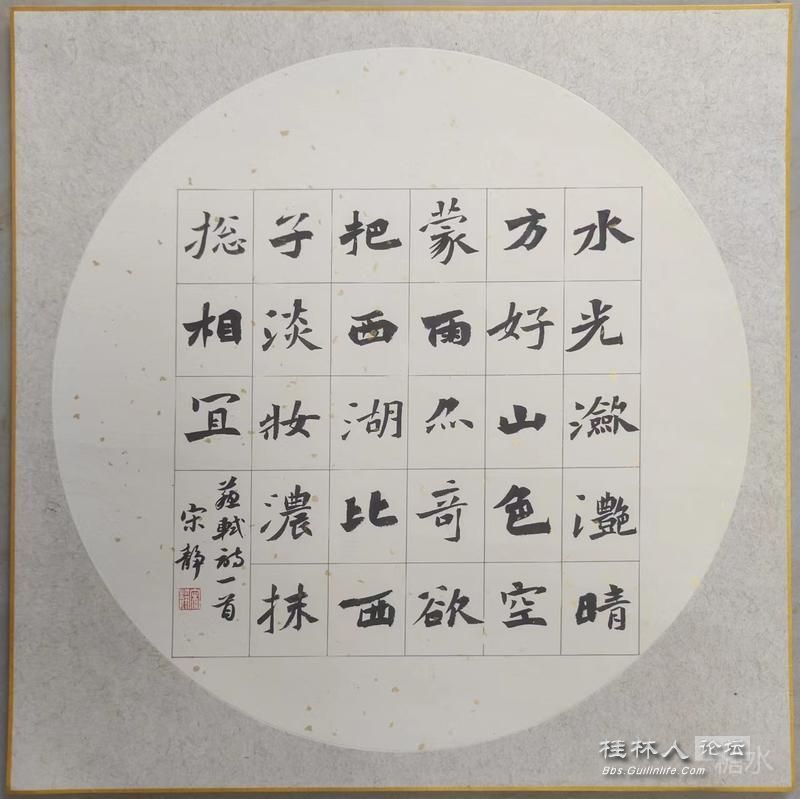 水光瀲灩晴
方好山色空
蒙雨亦奇欲
把西湖比西
子淡妝濃抹
捴相宜
蘇軾詩一首
宋静
桂林人论坛
Bbs.Guilinlife.Com
楮水